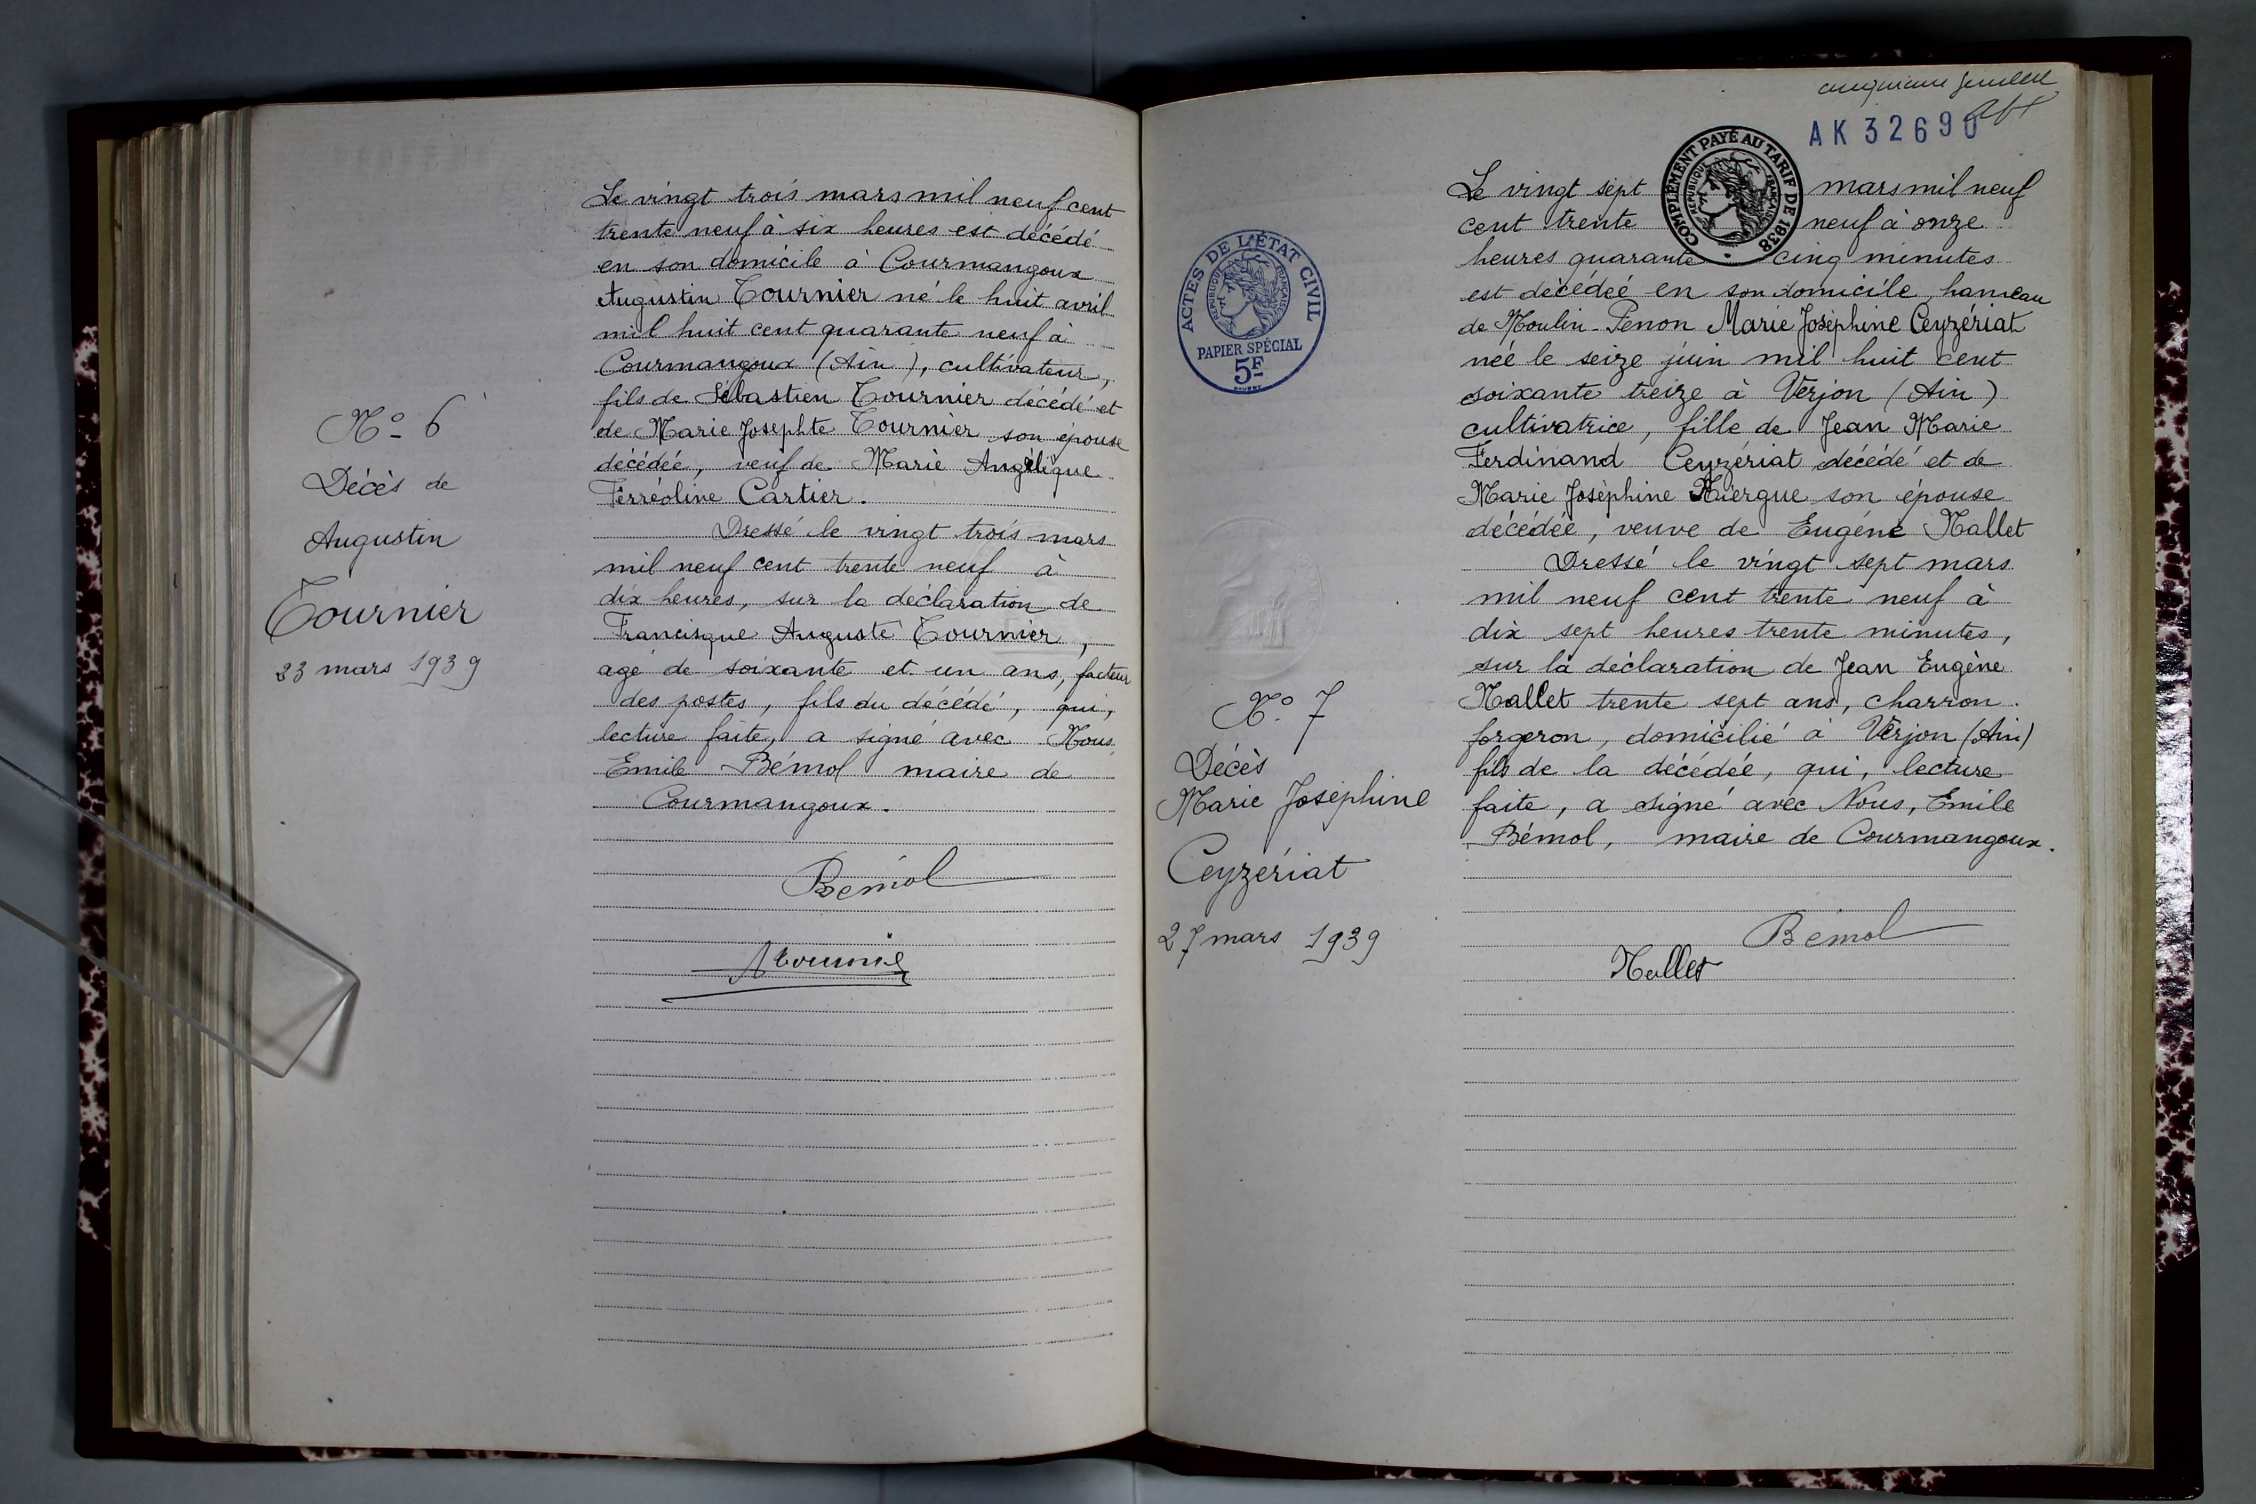 Le vingt trois mars mil neuf cent
trente neuf à six heures est décédé
en son domicile à Courmangoux
Augustin Tournier né le huit avril
mil huit cent quarante neuf à
Courmangoux (Ain), cultivateur,
fils de Sébastien Tournier décédé et
de Marie Josephte Tournier son épouse
décédée, veuf de Marie Angélique
Ferréoline Cartier.
Dressé le vingt trois mars
mil neuf cent trente neuf à
dix heures, sur la déclaration de
Francisque Auguste Tournier,
agé de soixante et un ans, facteur
des postes, fils du décédé, qui,
lecture faite, a signé avec Nous
Emile Bémol maire de
Courmangoux.
Bémol
ATournier
No 6
Décès de
Augustin
Tournier
23 mars 1939
cinquième feuillet
AK 32690
COMPLÉMENT PAYÉ AU TARIF DE 1938
RÉPUBLIQUE FRANÇAISE
ACTES DE L'ÉTAT CIVIL
RÉPUBLIQUE FRANÇAISE
PAPIER SPÉCIAL
5F
No 7
Décès
Marie Joséphine
Ceyzériat
27 mars 1939
Le vingt sept mars mil neuf
cent trente neuf à onze
heures quarante cinq minutes
est décédée en son domicile, hameau
de Moulin-Penon Marie Joséphine Ceyzériat
née le seize juin mil huit cent
soixante treize à Verjon (Ain)
cultivatrice, fille de Jean Marie
Ferdinand Ceyzériat décédé et de
Marie Joséphine son épouse
décédée, veuve de Eugéne Nallet
Dressé le vingt sept mars
mil neuf cent trente neuf à
dix sept heures trente minutes,
sur la déclaration de Jean Eugène
Nallet trente sept ans, charron
forgeron, domicilié à Verjon (Ain)
fils de la décédée, qui, lecture
faite, a signé avec Nous, Emile
Bémol, maire de Courmangoux.
Bémol
Nallet